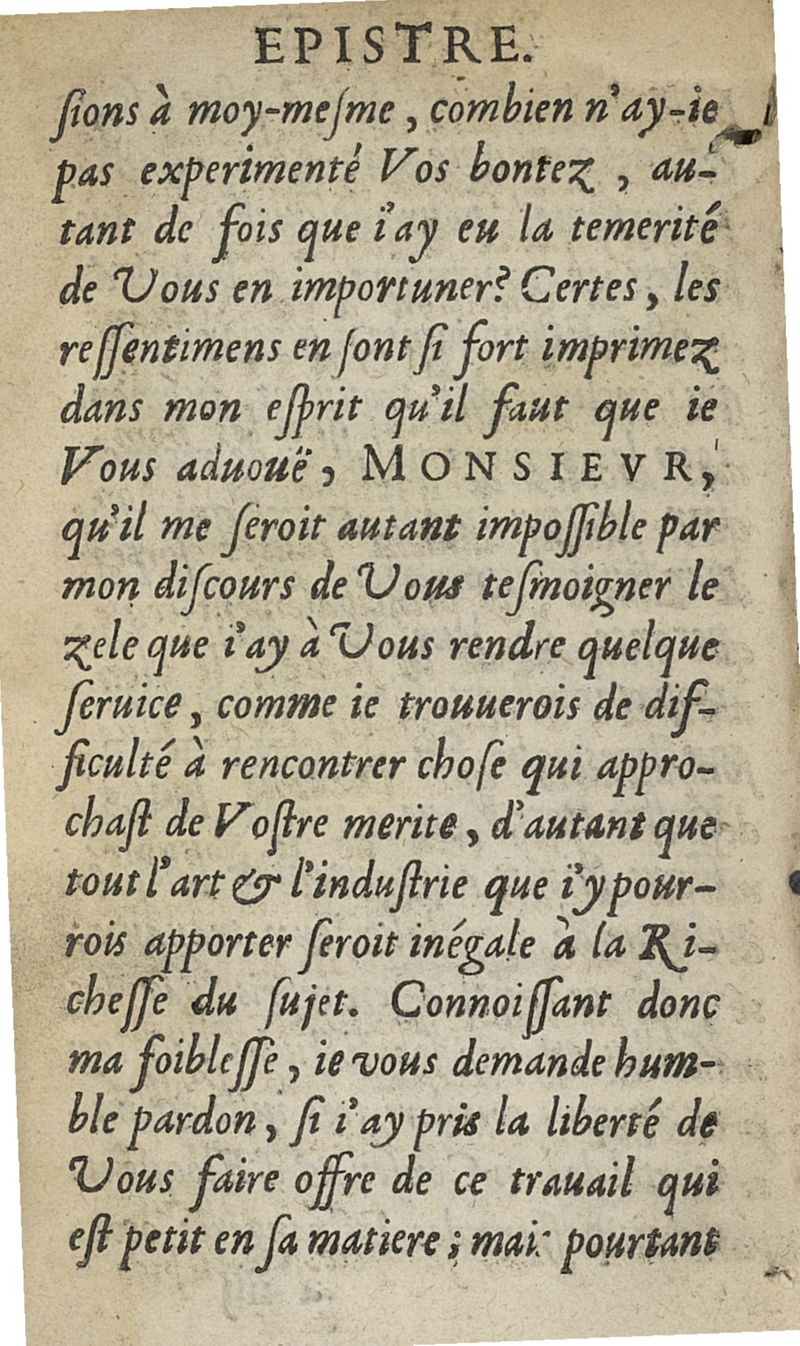 EPISTRE.
ſions à moy-meſme, combien n'ay-ie
pas experimenté Vos bontez, au-
tant de fois que i'ay eu la temerité
de Vous en importuner? Certes, les
reſſentimens en ſont ſi fort imprimez
dans mon eſprit qu'il faut que ie
Vous aduouë, MONSIEVR,
qu'il me ſeroit autant impoſſible par
mon diſcours de Vous teſmoigner le
zele que i'ay à Vous rendre quelque
ſeruice, comme ie trouuerois de dif-
ficulté à rencontrer choſe qui appro-
chaſt de Voſtre merite, d'autant que
tout l'art & l'induſtrie que i'y pour-
rois apporter ſeroit inégale à la Ri-
cheſſe du ſujet. Connoiſſant donc
ma foibleſſe, ie vous demande hum-
ble pardon, ſi i'ay pris la liberté de
Vous faire offre de ce trauail qui
eſt petit en ſa matiere; mais pourtant